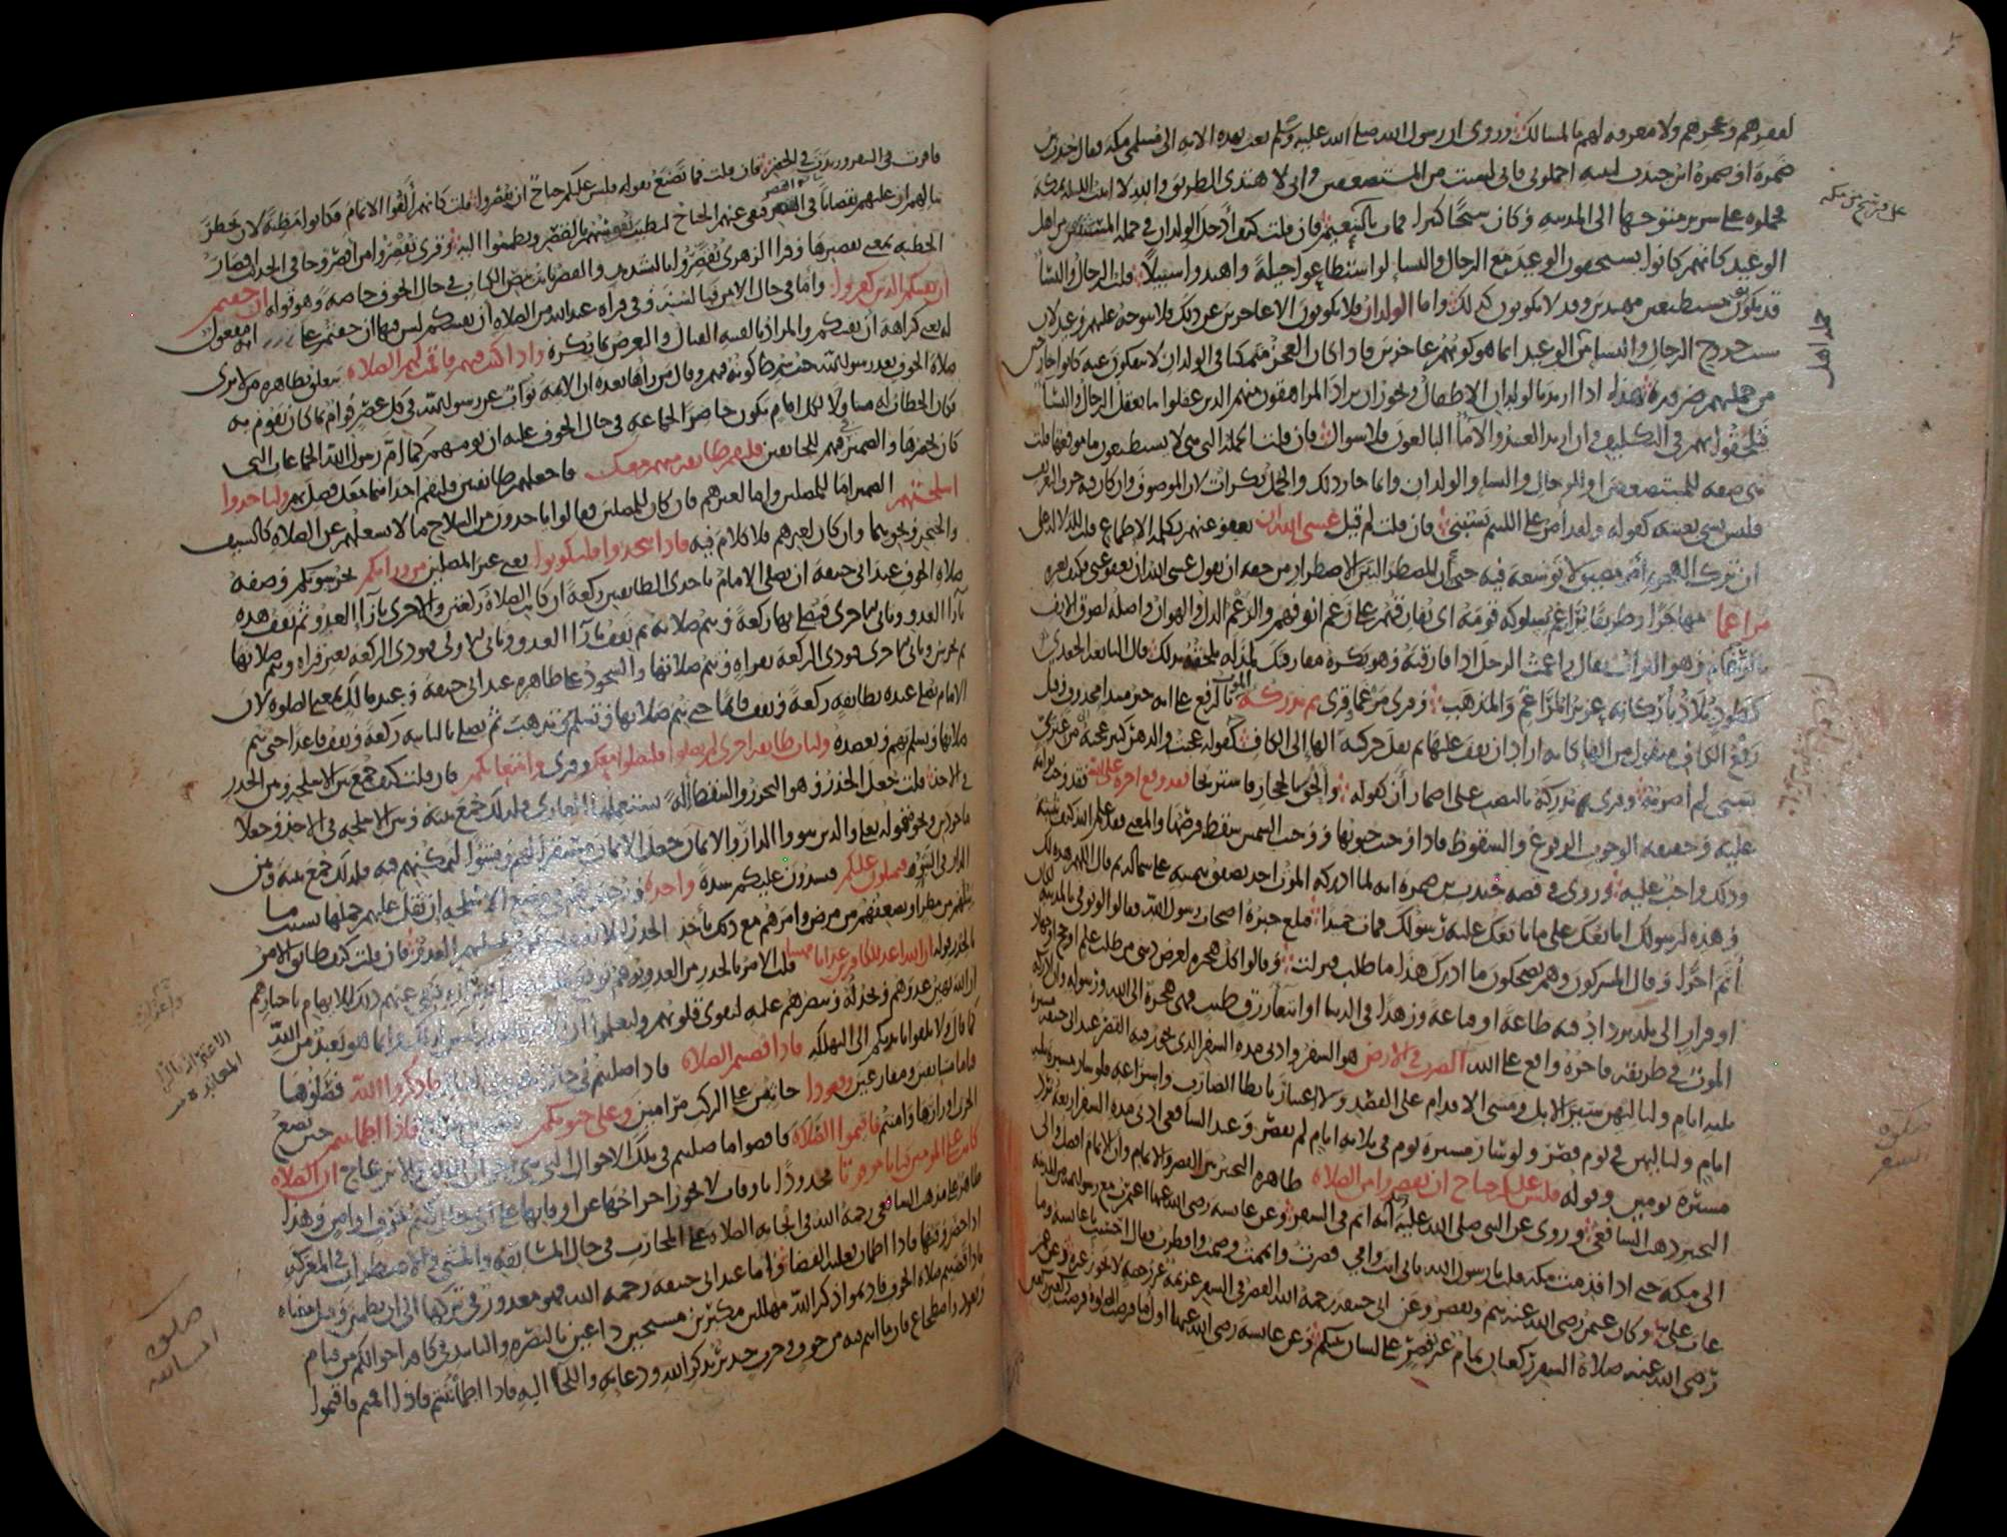 لفقرهم وعجزهم ولا معرفة لهم بالمسالك وروى ان رسول الله صلى الله عليه وسلم بعث بهذه الاية الى مسلمى مكة فقال جندب بن
ضمرة او ضمرة ابن جندب لبنيه احملونى فانى لست من المستضعفين وانى لا هتدى الطريق والله لا ابيت الليلة بمكة
فحملوه على سرير متوجها الى المدينة وكان شيخا كبيرا فمات بالتنعيم فان قلت كيف ادخل الولدان فى جملة المستثنين من اهل
الوعيد كانهم كانوا يستحقون الوعيد مع الرجال والنسا لو استطاعوا حيلة واهتدوا سبيلا قلت الرجال والنسا
قد يكونون مستطيعين مهتدين وقد لا يكونون كذلك واما الولدان فلا يكونون الا عاجزين عن ذلك فلا يتوجه عليهم وعيد لان
سبب خروج الرجال والنسا من الوعيد انما هو كونهم عاجزين فاذا كان العجز متمكنا فى الولدان لا ينفكون عنه كانوا خارجين
من جملتهم ضرورة هذا اذا اريد بالولدان الاطفال ويجوز ان يراد المراهقون منهم الذين عقلوا ما يعقل الرجال والنسا
فيلحقوا بهم فى التكليف وان اريد العبيد والاماء البالغون فلا سوال فان قلت الجملة التى هى لا يستطيعون ما موقعها قلت
هى صفة للمستضعفين او للرجال والنسا والولدان وانما جاز ذلك والجمل نكرات لان الموصوف وان كان فيه حرف التعريف
فليس بشى بعينه كقوله ولقد امر على اللئيم يسبنى فان قلت لم قيل عسى الله ان يعفو عنهم بكلمة الاطماع قلت للدلالة على
ان ترك الهجرة امر مضيق لا توسعة فيه حتى ان المضطر البين الاضطرار من حقه ان يقول عسى الله ان يعفو عنى فكيف بغيره
مراغما مهاجرا وطريقا يراغم بسلوكه قومه اى يفارقهم على رغم انوفهم والرغم الذل والهوان واصله لصوق الانف
بالرغام وهو التراب يقال راغمت الرجل اذا فارقته وهو يكره مفارقتك لمذلة تلحقه بذلك قال النابغة الجعدى
كطود يلاذ باركانه عزيز المراغم والمذهب وقرى مرغما وقرى ثم يدركه الموت بالرفع على انه خبر مبتدا محذوف وقيل
رفع الكاف منقول من الهاء كانه اراد ان يقف عليها ثم نقل حركة الهاء الى الكاف كقوله عجبت والدهر كثير عجبه من عنزى
سبنى لم اضربه وقرى يدركه بالنصب على اضمار ان كقوله والحق بالحجاز فاستريحا فقد وقع اجره على الله فقد وجب ثوابه
عليه وحقيقة الوجوب الوقوع والسقوط فاذا وجبت جنوبها ووجبت الشمس سقط قرصها والمعنى فقد علم الله كيف يثيبه
وذلك واجب عليه وروى فى قصة جندب بن ضمرة انه لما ادركه الموت اخذ يصفق بيمينه على شماله ثم قال اللهم هذه لك
وهذه لرسولك ابايعك على ما بايعك عليه رسولك فمات حميدا فبلغ خبره اصحاب رسول الله فقالوا لو توفى بالمدينة لكان
اتم اجرا وقال المشركون وهم يضحكون ما ادرك هذا ما طلب فنزلت وقالوا كل هجرة لغرض دينى من طلب علم او حج او جهاد
او فرار الى بلد يزداد فيه طاعة او قناعة وزهدا فى الدنيا او ابتغاء رزق طيب فهى هجرة الى الله ورسوله وان ادركه
الموت فى طريقه فاجره واقع على الله الضرب فى الارض هو السفر وادنى مدة السفر الذى يجوز فيه القصر عند ابى حنيفة مسيرة
ثلثة ايام ولياليهن سير الابل ومشى الاقدام على القصد ولا اعتبار بابطا الضارب واسراعه فلو سار مسيرة ثلثة
ايام ولياليهن فى يوم قصر ولو سار مسيرة يوم فى ثلاثة ايام لم يقصر وعند الشافعى ادنى مدة السفر اربعة برد
مسيرة يومين وقوله فليس عليكم جناح ان تقصروا من الصلاة ظاهره التخيير بين القصر والاتمام وان الاتمام افضل والى
التخيير ذهب الشافعى وروى عن النبى صلى الله عليه انه اتم فى السفر وعن عائشة رضى الله عنها اعتمرت مع رسول الله من المدينة
الى مكة حتى اذا قدمت مكة قلت يا رسول الله بابى انت وامى قصرت واتممت وصمت وافطرت فقال احسنت يا عائشة وما
عاب على وكان عثمن رضى الله عنه يتم ويقصر وعن ابى حنيفة رحمه الله القصر فى السفر عزيمة غير رخصة لا يجوز غيره وعن عمر
رضى الله عنه صلاة السفر ركعتان تمام غير قصر على لسان نبيكم وعن عائشة رضى الله عنها اول ما فرضت الصلوة فرضت ركعتين ركعتين
فاقرت فى السفر وزيدت فى الحضر فان قلت فما تصنع بقوله فليس عليكم جناح ان تقصروا قلت كانهم الفوا الاتمام فكانوا مظنة لان يخطر
ببالهم ان عليهم نقصانا فى القصر فنفى عنهم الجناح لتطيب انفسهم بالقصر ويطمئنوا اليه وقرى تقصروا من اقصر وجا فى الحديث اقصار
الخطبة بمعنى تقصيرها وقرا الزهرى تقصروا بالتشديد والقصر ثابت بنص الكتاب فى حال الخوف خاصة وهو قوله ان خفتم
ان يفتنكم الذين كفروا واما فى حال الامن فبالسنة وفى قراة عبد الله من الصلاة ان يفتنكم ليس فيها ان خفتم على انه مفعول
له بمعنى كراهة ان يفتنكم والمراد بالفتنة القتال والتعرض بما يكره واذا كنت فيهم فاقمت لهم الصلاة يتعلق بظاهره من لا يرى
صلاة الخوف بعد رسول الله حيث شرط كونه فيهم وقال من راها بعده ان الايمة نواب عن رسول الله فى كل عصر قوام بما كان يقوم به
فكان الخطاب له متناولا لكل امام يكون حاضر الجماعة فى حال الخوف عليه ان يومهم كما ام رسول الله الجماعات التى
كان يحضرها والضمير فى فيهم للخائفين فلتقم طائفة منهم معك فاجعلهم طائفتين فلتقم احداهما معك فصل بهم ولياخذوا
اسلحتهم الضمير اما للمصلين واما لغيرهم فان كان للمصلين فقالوا ياخذون من السلاح ما لا يشغلهم عن الصلاة كالسيف
والخنجر ونحوهما وان كان لغيرهم فلا كلام فيه فاذا سجدوا فليكونوا يعنى غير المصلين من ورائكم يحرسونكم وصفة
صلاة الخوف عند ابى حنيفة ان يصلى الامام باحدى الطائفتين ركعة ان كانت الصلاة ركعتين والاخرى بازاء العدو ثم تقف هذه
بازاء العدو وتاتى الاخرى فيصلى بها ركعة ويتم صلاته ثم تقف بازاء العدو وتاتى الاولى فتودى الركعة بغير قراة وتتم صلاتها
ثم تحرس وتاتى الاخرى فتودى الركعة بقراة وتتم صلاتها والسجود على ظاهره عند ابى حنيفة وعند مالك بمعنى الصلوة لان
الامام يصلى عنده بطائفة ركعة ويقف قائما حتى تتم صلاتها وتسلم وتذهب ثم يصلى بالثانية ركعة ويقف قاعدا حتى تتم
صلاتها ويسلم بهم ويعضده ولتات طائفة اخرى لم يصلوا فليصلوا معك وقرى وامتعاتكم فان قلت كيف جمع بين الاسلحة وبين الحذر
فى الاخذ قلت جعل الحذر وهو التحرز والتيقظ الة يستعملها الغازى فلذلك جمع بينه وبين الاسلحة فى الاخذ وجعلا
ماخوذين ونحوه قوله تعالى والذين تبووا الدار والايمان جعل الايمان مستقرا لهم ومتبوا لتمكنهم فيه فلذلك جمع بينه وبين
الدار فى التبوء فيميلون عليكم فيشدون عليكم شدة واحدة ورخص لهم فى وضع الاسلحة ان ثقل عليهم حملها بسبب ما
يبلهم من مطر او يضعفهم من مرض وامرهم مع ذلك باخذ الحذر لئلا يغفلوا فيهجم عليهم العدو فان قلت كيف طابق الامر
بالحذر قوله ان الله اعد للكافرين عذابا مهينا قلت الامر بالحذر من العدو يوهم فنفى عنهم ذلك الايهام باخبارهم
ان الله يهين عدوهم ويخذله وينصرهم عليه لتقوى قلوبهم وليعلموا ان وانما هو تعبد من الله
كما قال ولا تلقوا بايديكم الى التهلكة فاذا قضيتم الصلاة فاذا صليتم فى حال فاذكروا الله فصلوها
قياما مسايفين ومقارعين وقعودا جاثين على الركب مرامين وعلى جنوبكم فاذا اطمأننتم حين تضع
الحرب اوزارها وامنتم فاقيموا الصلاة فاقضوا ما صليتم فى تلك الاحوال التى هى والانزعاج ان الصلاة
كانت على المومنين كتابا موقوتا محدودا باوقات لا يجوز اخراجها عن اوقاتها على اى حال كنتم خوف او امن وهذا
ظاهر على مذهب الشافعى رحمه الله فى ايجابه الصلاة على المحارب فى حال المسايفة والمشى والاضطراب فى المعركة
اذا حضر وقتها فاذا اطمان فعليه القضا واما عند ابى حنيفة رحمه الله فهو معذور فى تركها الى ان يطمئن وقيل معناه
فاذا قضيتم صلاة الخوف فاديموا ذكر الله مهللين مكبرين مسبحين داعين بالنصرة والتاييد فى كافة احوالكم من قيام
وقعود واضطجاع فان ما انتم فيه من خوف وحرب جدير بذكر الله ودعائه واللجا اليه فاذا اطمأننتم فاذا اقمتم فاقيموا
صلوة
السفر
صلوة
المسايفة